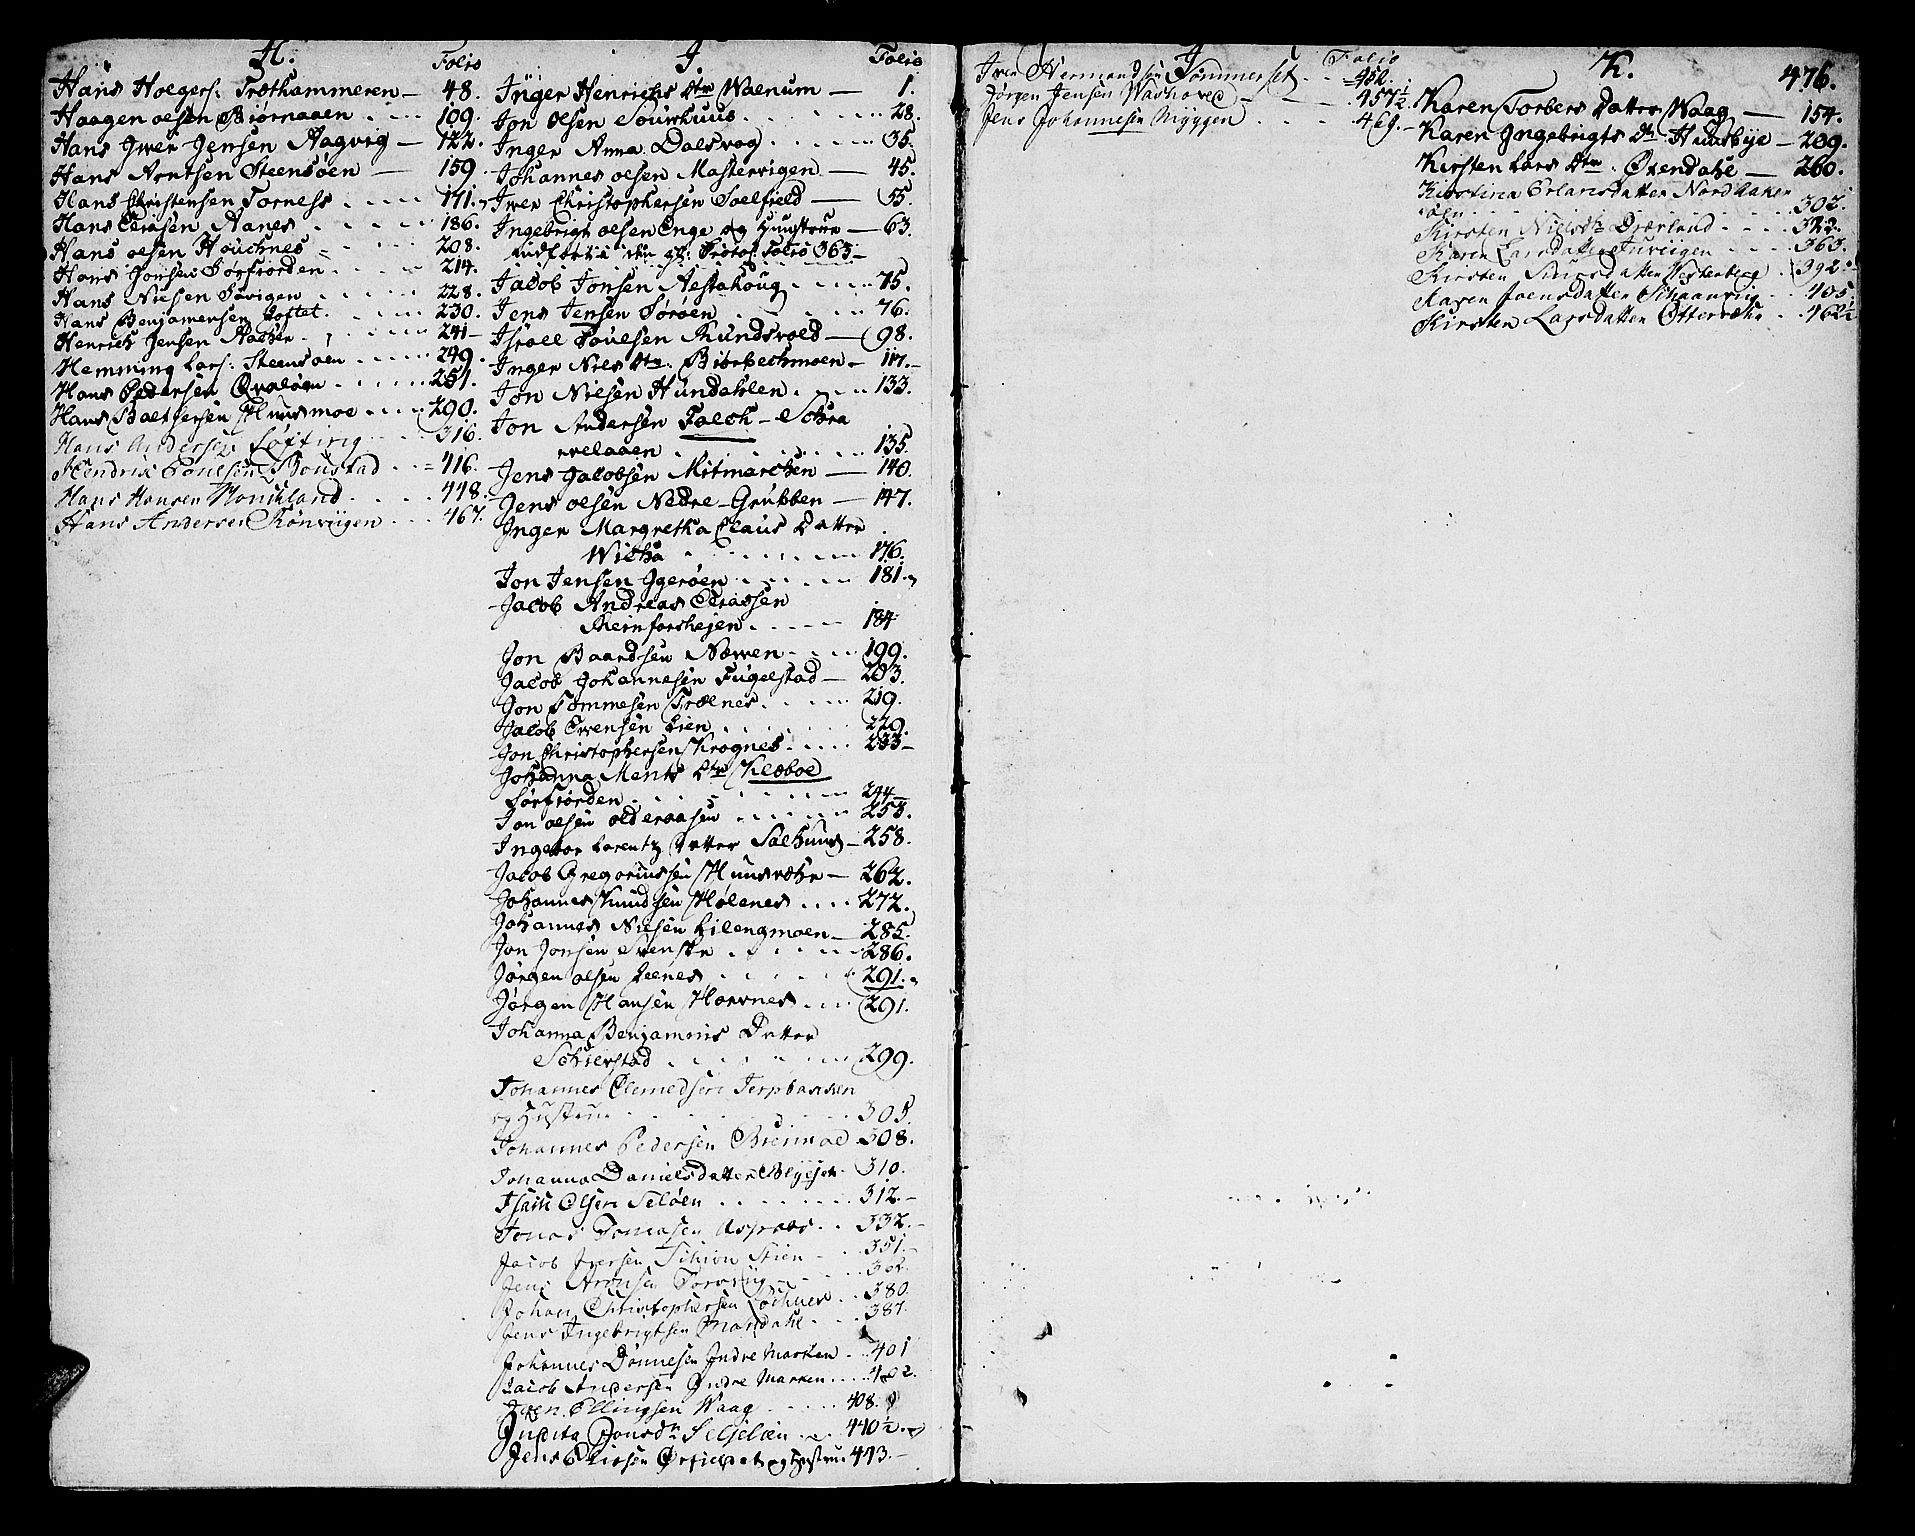 H. Folio
Hans Holgers: Trøthammeren — 48.
Haagen olsen Biørnaaen 109.
Hans Iwer Jensen Aagvig — 122.
Hans Arntsen Steensøen — 159.
Hans Christensen Torness 171.
Hans Eriasen Aanes 186.
Hans olsen Houchnes 208.
Hans Jonsen Sørfiorden 214.
Hans Nielsen Søvigen 228.
Hans Benjamensen Toftet 230.
Henrich Jensen Aachen 241
Hemming Lars: Steensoen 249.
Hans Pedersen Qvaløen 251.
Hans Balthersen Huusmoe 290.
Hans Andersen Løfting 316.
Hendrik Poulsen Bonstad 416.
Hans Hansen 448.
Hans Andersen Rönviigen 467.
J. Folio
Inger Henrichs Dtr Walnum — 1.
Jon olsen Sourhuus 28.
Inger Anna Dalsvog 35.
Johannes olsen Mastervigen — 45.
Iwer Christophersen Soelfield — 55.
Ingebrigt olsen Enge og Huustrue — 63.
indført i den gl: Protoc: Folio 363 —
Jacob Jonsen Aestahoug 75.
Jens Jensen Sørøen 76.
Isræl Poulsen Rundvold — 98.
Inger Niels Dtr. Bierbechmoen — 117.
Jon Nielsen Hundahlen 133.
Jon Andersen Falch — Schra
velaaen 135.
Jens Jacobsen Mitmarchen — 140.
Jens olsen Nedre-Grubben — 147.
Inger Margretha Claus Datter
Wicha 176.
Jon Jensen Ygerøen 181.
Jacob Andreas Eriassen
Rheinforshejen 184
Jon Baardsen Næwen 199.
Jacob Johannesen Fugelstad — 203.
Jon Tommesen Trælnes 219.
Jacob Ewensen Lien 229.
Jon Christophersen Krognes 233 —
Johanna Ments Dtr Klæboe
Sørfiorden 244 —
Jon olsen olderaasen 253.
Ingebor Lorentz Datter Salhuus — 258.
Jacob Gregoriussen Huusvæhr — 262.
Johannes Knudsen Holenes 272.
Johannes Nielsen Lilengmoen — 285.
Jon Jonsen Svenske 286.
Jørgen olsen Leenes 291.
Jørgen Hansen Horvnes 291.
Johanna Benjamins Datter
Schierstad 299.
Johannes Clemedsen Terpbakken
og Hustrue 305.
Johannes Pedersen Breimoe 308.
Johanna Danielsdatter 310.
Isach Olsen Seløen 312.
Jonas Tomasen Aspaas 332.
Jacob Iversen Stien 351.
Jens Aronsen Torvviig
Johan Christophersen 380.
Jens Ingebrigtsen 387.
Johannes Dønnesen Indre Marken 401
Jacob Andersen Indre Marken 402.
Iven Ellingsen Waag 408.
Indita Jonsdr 440½
Jens og Hustrue 443.
J. Folio
Iver Nermandsen Sommerset 452.
Jørgen Jensen 457½
Jens Johannesen Myggen 469.
K. 476.
Karen Torbers Datter Waag — 154.
Karen Ingebrigts Dtr Huusbye — 209.
Kirsten Lars Dtr Øxendahl — 260.
Kirstina Erlansdatter Nordtaker
søen 302.
Kirsten Nielsdr 322.
Karen Larsdatter 363.
Kirsten Simensdatter Vesterberg 392.
Karen Joensdatter Schaanviig 405
Kirsten Larsdatter Ottervæhr 462½